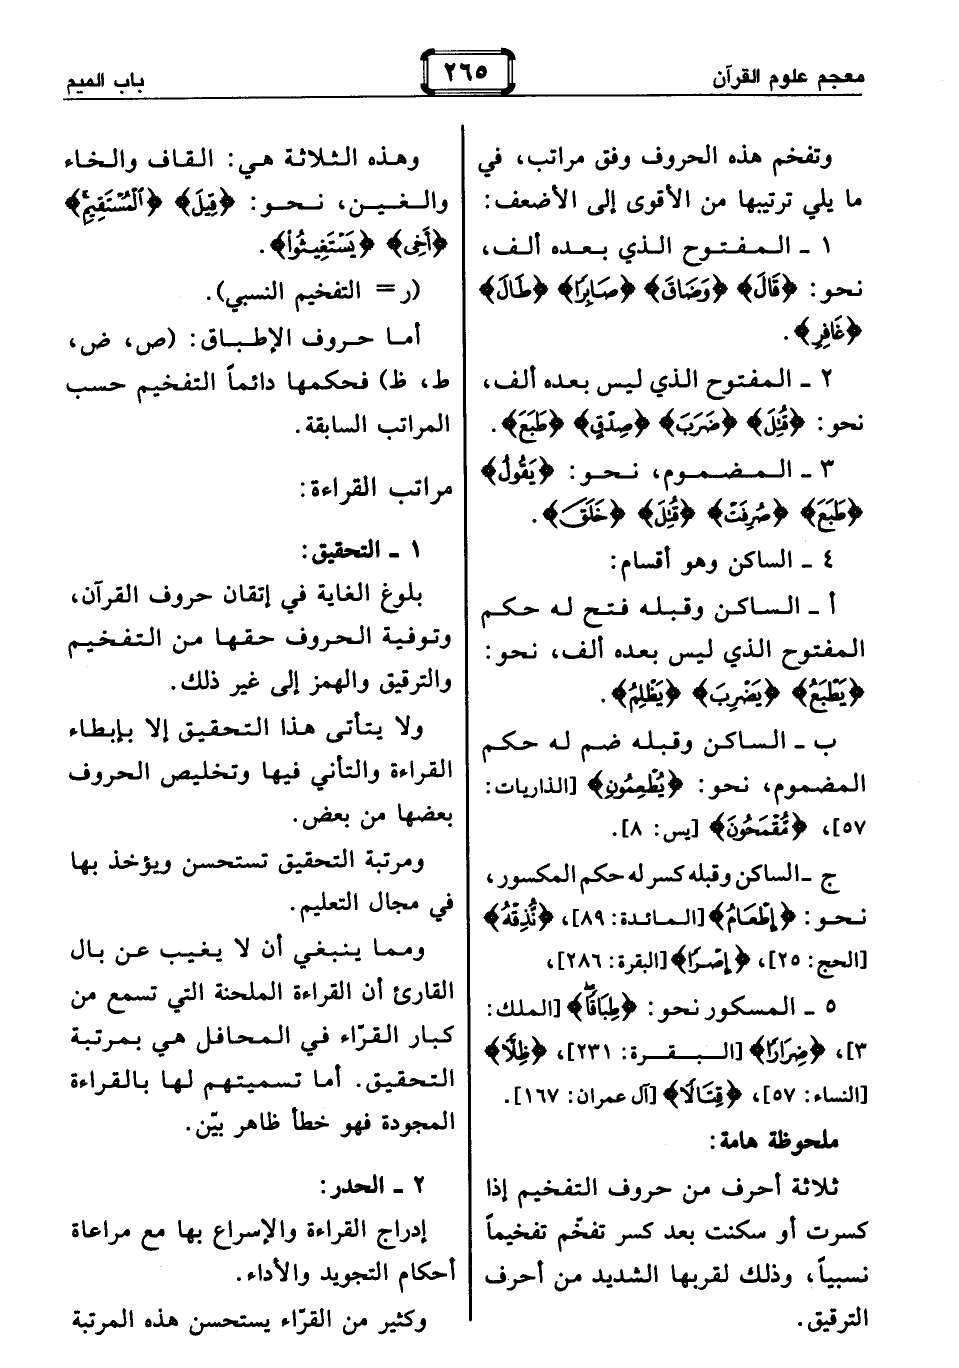 معجم علوم القرآن
٢٦٥
باب الميم
وتفخم هذه الحروف وفق مراتب، في
ما يلي ترتيبها من الأقوى إلى الأضعف:
١ ـ المفتوح الذي بعده ألف،
نحو: ﴿قَالَ﴾ ﴿وَضَاقَ﴾ ﴿صَابِرًا﴾ ﴿طَالَ﴾
﴿غَافِرِ﴾.
٢ ـ المفتوح الذي ليس بعده ألف،
نحو: ﴿قُتِلَ﴾ ﴿ضَرَبَ﴾ ﴿صِدْقٍ﴾ ﴿طَبَعَ﴾.
٣ ـ المضموم، نحو: ﴿يَقُولُ﴾
﴿طَبَعَ﴾ ﴿صُرِفَتْ﴾ ﴿قُتِلَ﴾ ﴿خَلَقَ﴾.
٤ ـ الساكن وهو أقسام:
أ ـ الساكن وقبله فتح له حكم
المفتوح الذي ليس بعده ألف، نحو:
﴿يَطْبَعُ﴾ ﴿يَضْرِبَ﴾ ﴿يَظْلِمُ﴾.
ب ـ الساكن وقبله ضم له حكم
المضموم، نحو: ﴿يُطْعِمُونِ﴾ [الذاريات:
٥٧]، ﴿مُّقْمَحُونَ﴾ [يس: ٨].
ج ـ الساكن وقبله كسر له حكم المكسور،
نحو: ﴿إِطْعَامُ﴾ [المائدة: ٨٩]، ﴿نُّذِقْهُ﴾
[الحج: ٢٥]، ﴿إِصْرًا﴾ [البقرة: ٢٨٦]،
٥ ـ المسكور نحو: ﴿طِبَاقًا﴾ [الملك:
٣]، ﴿ضِرَارًا﴾ [البقرة: ٢٣١]، ﴿ظِلًّا﴾
[النساء: ٥٧]، ﴿قِتَالًا﴾ [آل عمران: ١٦٧].
ملحوظة هامة:
ثلاثة أحرف من حروف التفخيم إذا
كسرت أو سكنت بعد كسر تفخّم تفخيماً
نسبياً، وذلك لقربها الشديد من أحرف
الترقيق.
وهذه الثلاثة هي: القاف والخاء
والغين، نحو: ﴿قِيلَ﴾ ﴿الْمُسْتَقِيمَ﴾
﴿أَخِى﴾ ﴿يَسْتَغِيثُوا﴾.
(ر= التفخيم النسبي).
أما حروف الإطباق: (ص، ض،
ط، ظ) فحكمها دائماً التفخيم حسب
المراتب السابقة.
مراتب القراءة:
١ ـ التحقيق:
بلوغ الغاية في إتقان حروف القرآن،
وتوفية الحروف حقها من التفخيم
والترقيق والهمز إلى غير ذلك.
ولا يتأتى هذا التحقيق إلا بإبطاء
القراءة والتأني فيها وتخليص الحروف
بعضها من بعض.
ومرتبة التحقيق تستحسن ويؤخذ بها
في مجال التعليم.
ومما ينبغي أن لا يغيب عن بال
القارئ أن القراءة الملحنة التي تسمع من
كبار القرّاء في المحافل هي بمرتبة
التحقيق. أما تسميتهم لها بالقراءة
المجودة فهو خطأ ظاهر بيّن.
٢ ـ الحدر:
إدراج القراءة والإسراع بها مع مراعاة
أحكام التجويد والأداء.
وكثير من القرّاء يستحسن هذه المرتبة